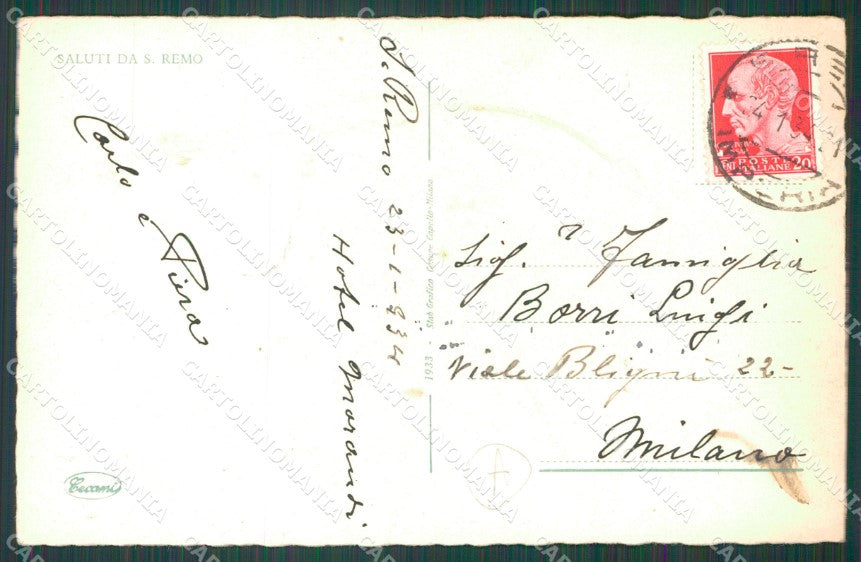 SALUTI DA S. REMO
Carlo e
Piera
S. Remo 23-1-934
Hotel Morandi
1933 - Stab. Grafico Cesare Capello-Milano
POSTE
ITALIANE 20
Sig. Famiglia
Borri Luigi
Viale Bligni 22-
Milano
A
Cecami
CARTOLINOMANIA